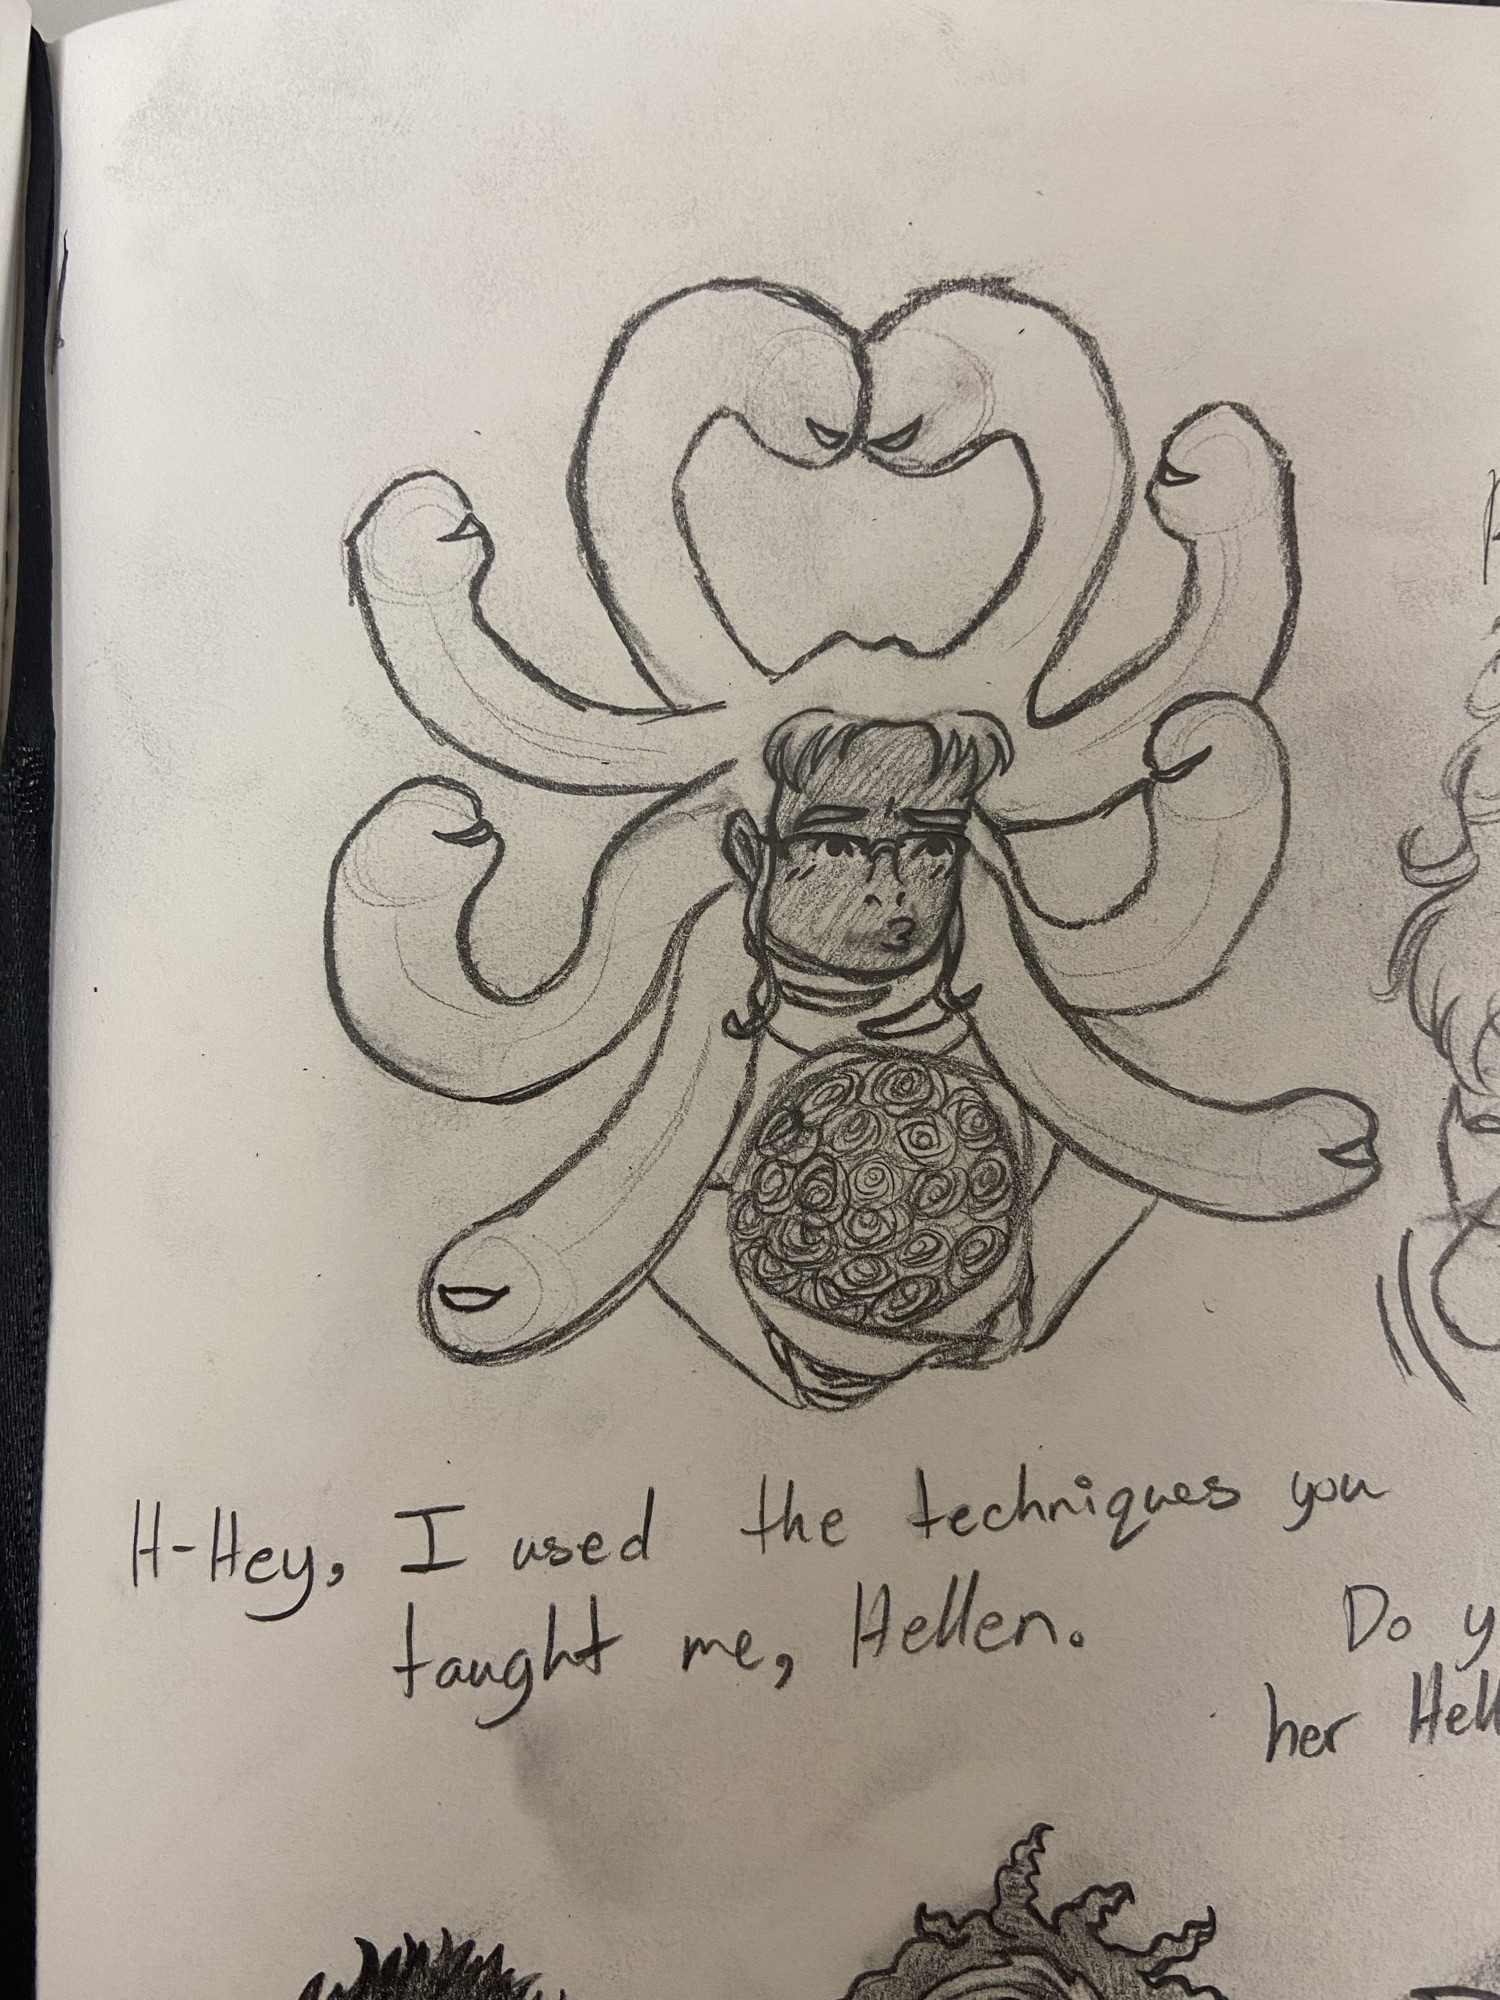 H-Hey, I used the techniques you
taught me, Hellen.
Do
her